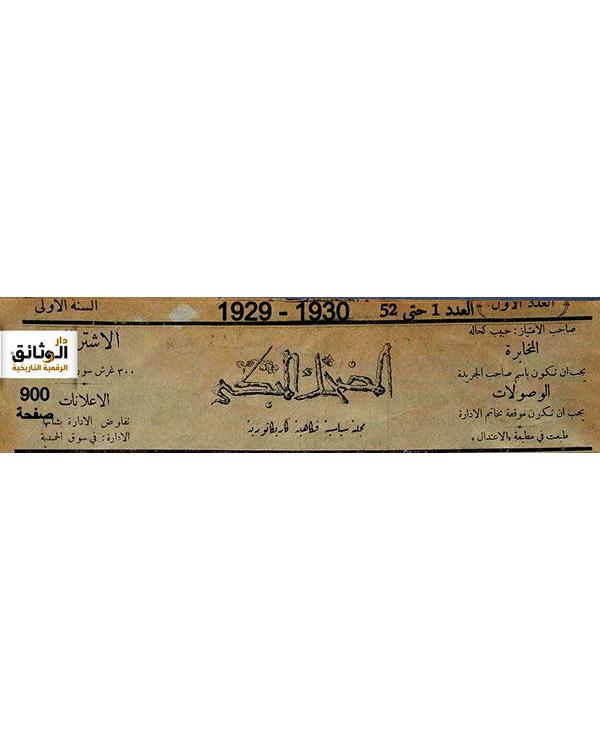 السنه الاولى
1929 - 1930
العدد 1 حتى 52
العدد الاول
صاحب الامتياز : حبيب كحاله
المخابرة
يجب ان تكون باسم صاحب الجريدة
الوصولات
يجب ان تكون موقعة بخاتم الادارة
طبعت في مطبعة «الاعتدال»
المضحك المبكي
مجلة سياسية فكاهية كاريكاتورية
الاشتر
٣٠٠ غرش سور
الاعلانات
تفاوض الادارة بشأنها
الادارة : في سوق الحميدية
دار
الوثائق
الرقمية التاريخية
900
صفحة